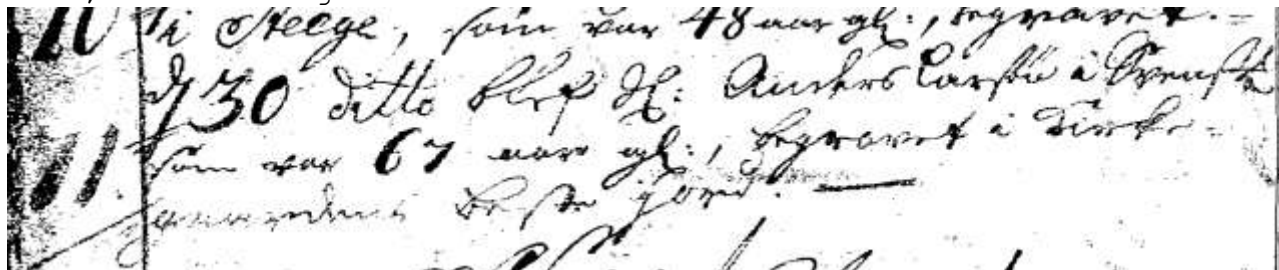 10 i Steege, som var 48 aar gl:, begravet.
d 30 ditto blef Sl: Anders Larsen i Svenste
11 som var 67 aar gl:, begravet i Kirke-
gaardens beste jord.